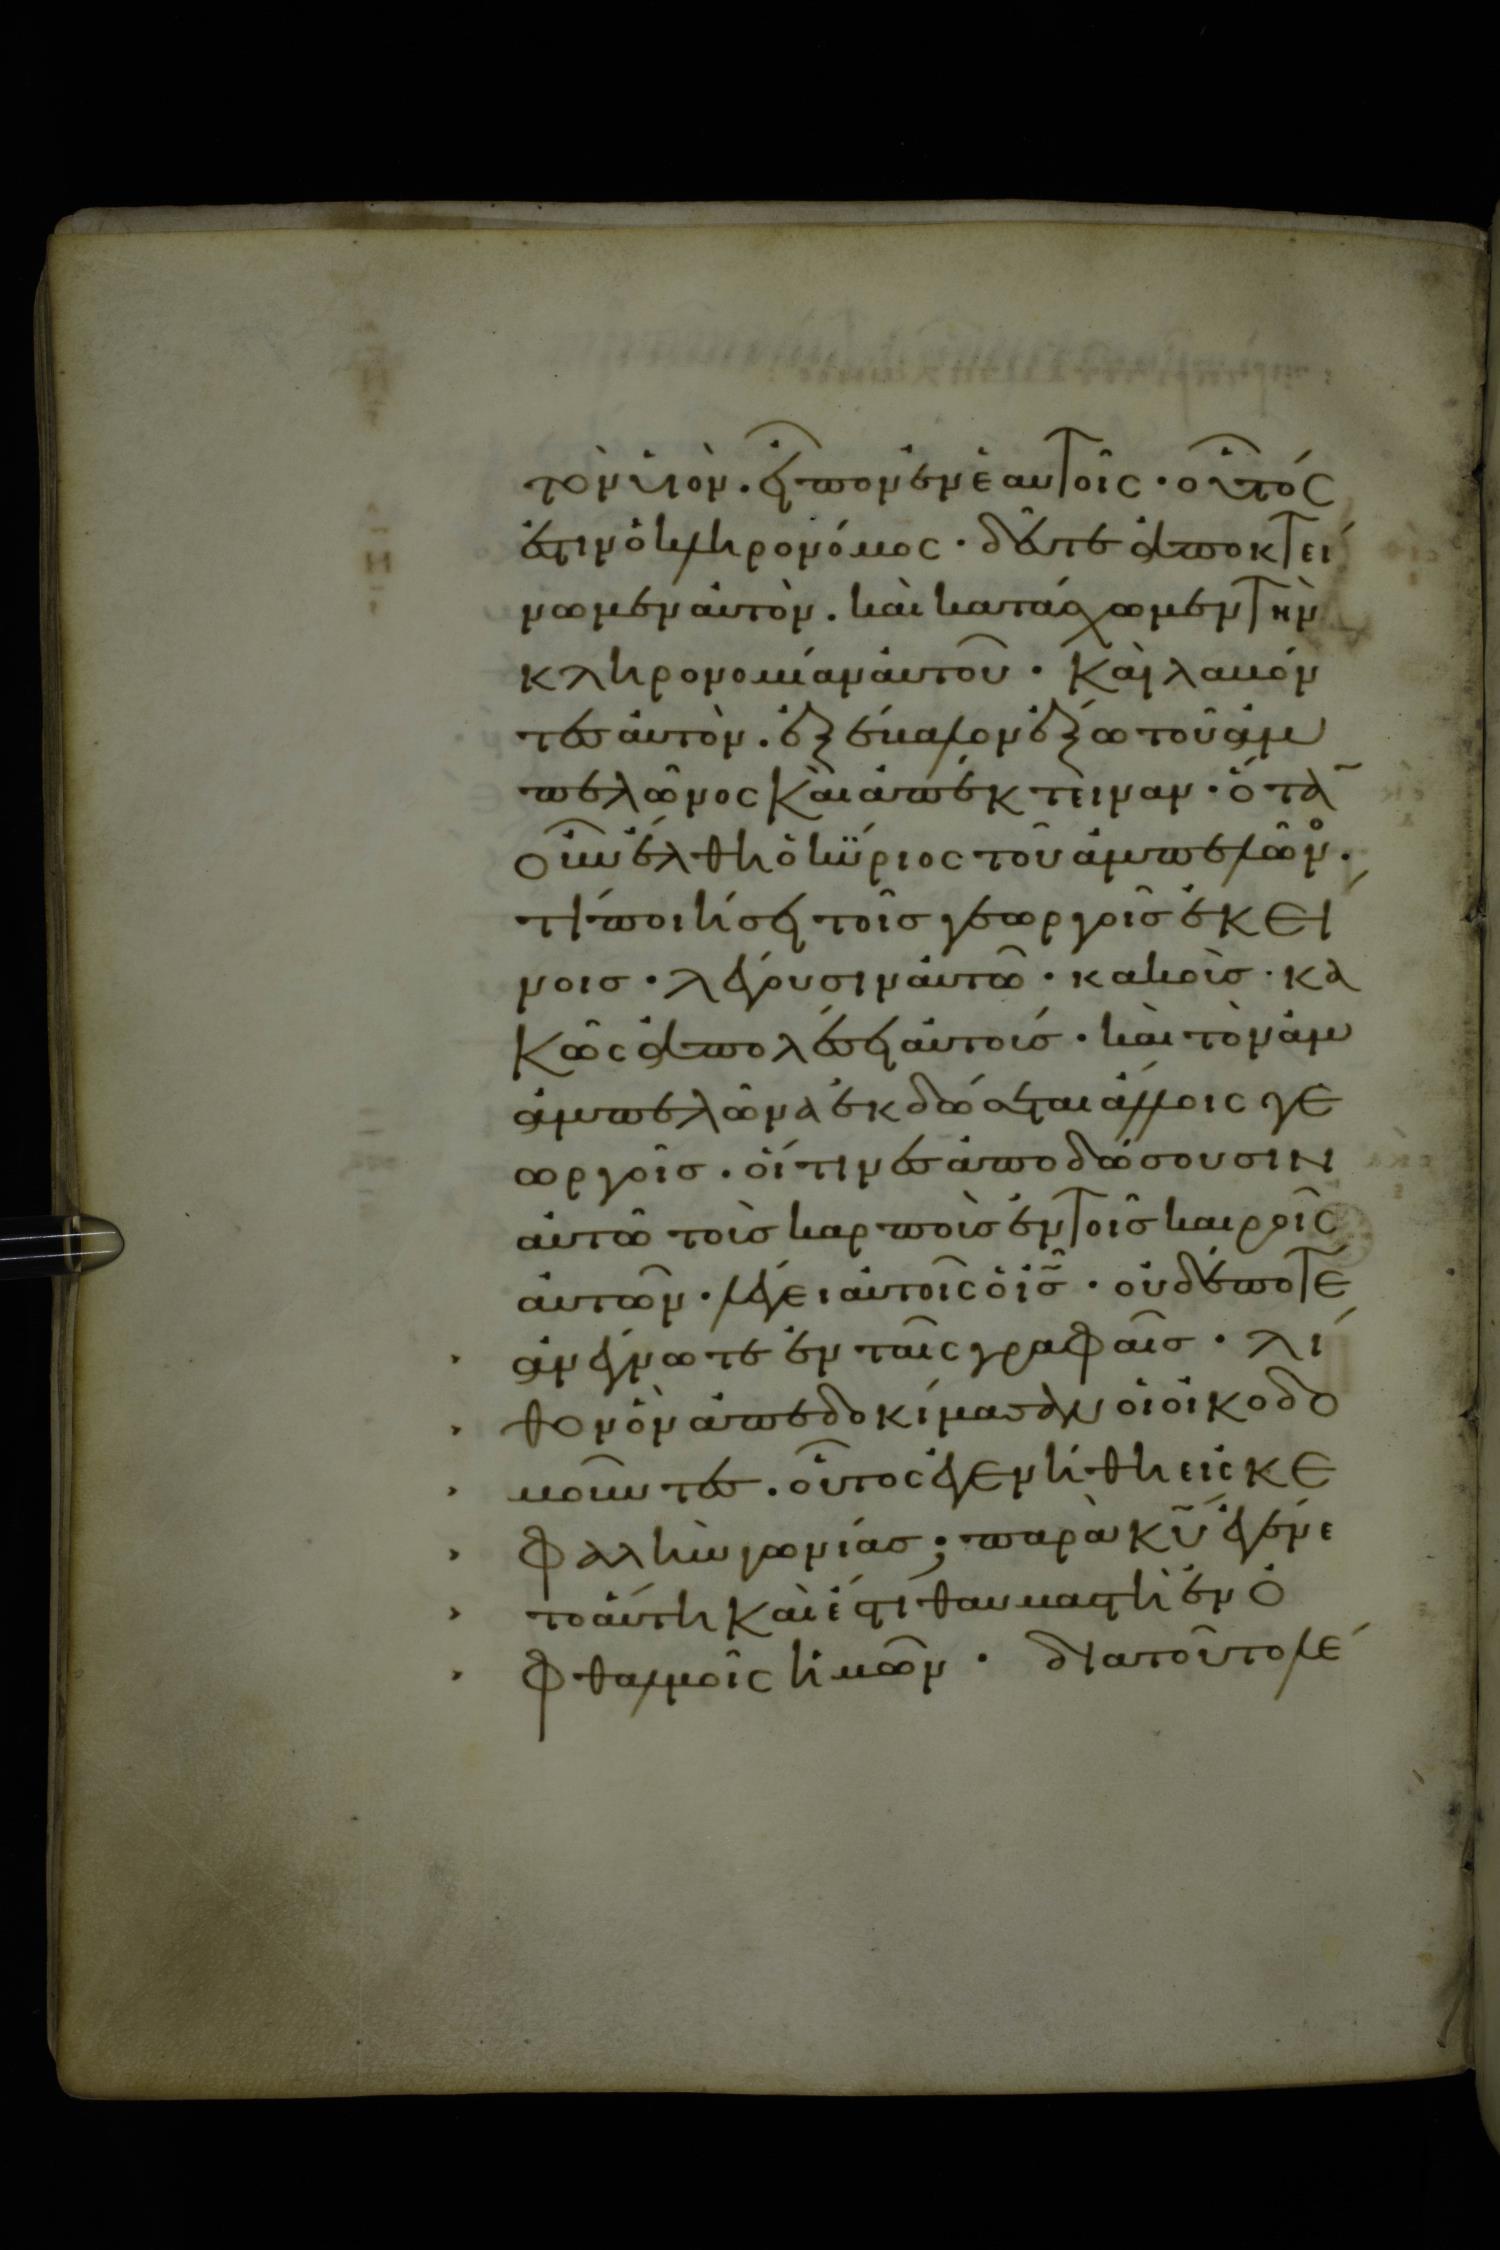 τὸν υἱὸν. εἶπον ἐν ἑαυτοῖς· οὗτός
ἐστιν ὁ κληρονόμος· δεῦτε ἀποκτεί
νωμεν αὐτὸν. καὶ κατάσχωμεν τὴν
κληρονομίαν αὐτοῦ· Καὶ λαβόν
τες αὐτὸν. ἐξέβαλον ἔξω τοῦ ἀμ
πελῶνος καὶ ἀπέκτειναν· ὅτᾱ
οὖν ἔλθη ὁ κύριος τοῦ ἀμπελῶνο.
τί ποιήσει τοῖς γεωργοῖς ἐκεί
νοις· λέγουσιν αὐτῶ· κακοὺς· κα
κῶς ἀπολέσει αὐτούς· καὶ τὸν ἀμ
ἀμπελῶνα ἐκδώσεται ἄλλοις γε
ωργοῖς. οἵτινες ἀποδώσουσιν
αὐτῶ τοὺς καρποὺς ἐν τοῖς καιροῖς
αὐτῶν· λέγει αὐτοῖς ὁ ις̄· οὐδέποτε
› ἀνέγνωτε ἐν ταῖς γραφαῖς· λί
› θον ὃν ἀπεδοκίμασαν οἱ οἰκοδο
› μοῦντες. οὗτος ἐγενήθη εἰς κε
› φαλὴν γωνίας; παρὰ κῡ ἐγένε
› το αὕτη καὶ ἔστι θαυμαστὴ ἐν ὀ
› φθαλμοῖς ἡμῶν· διατοῦτο λέ